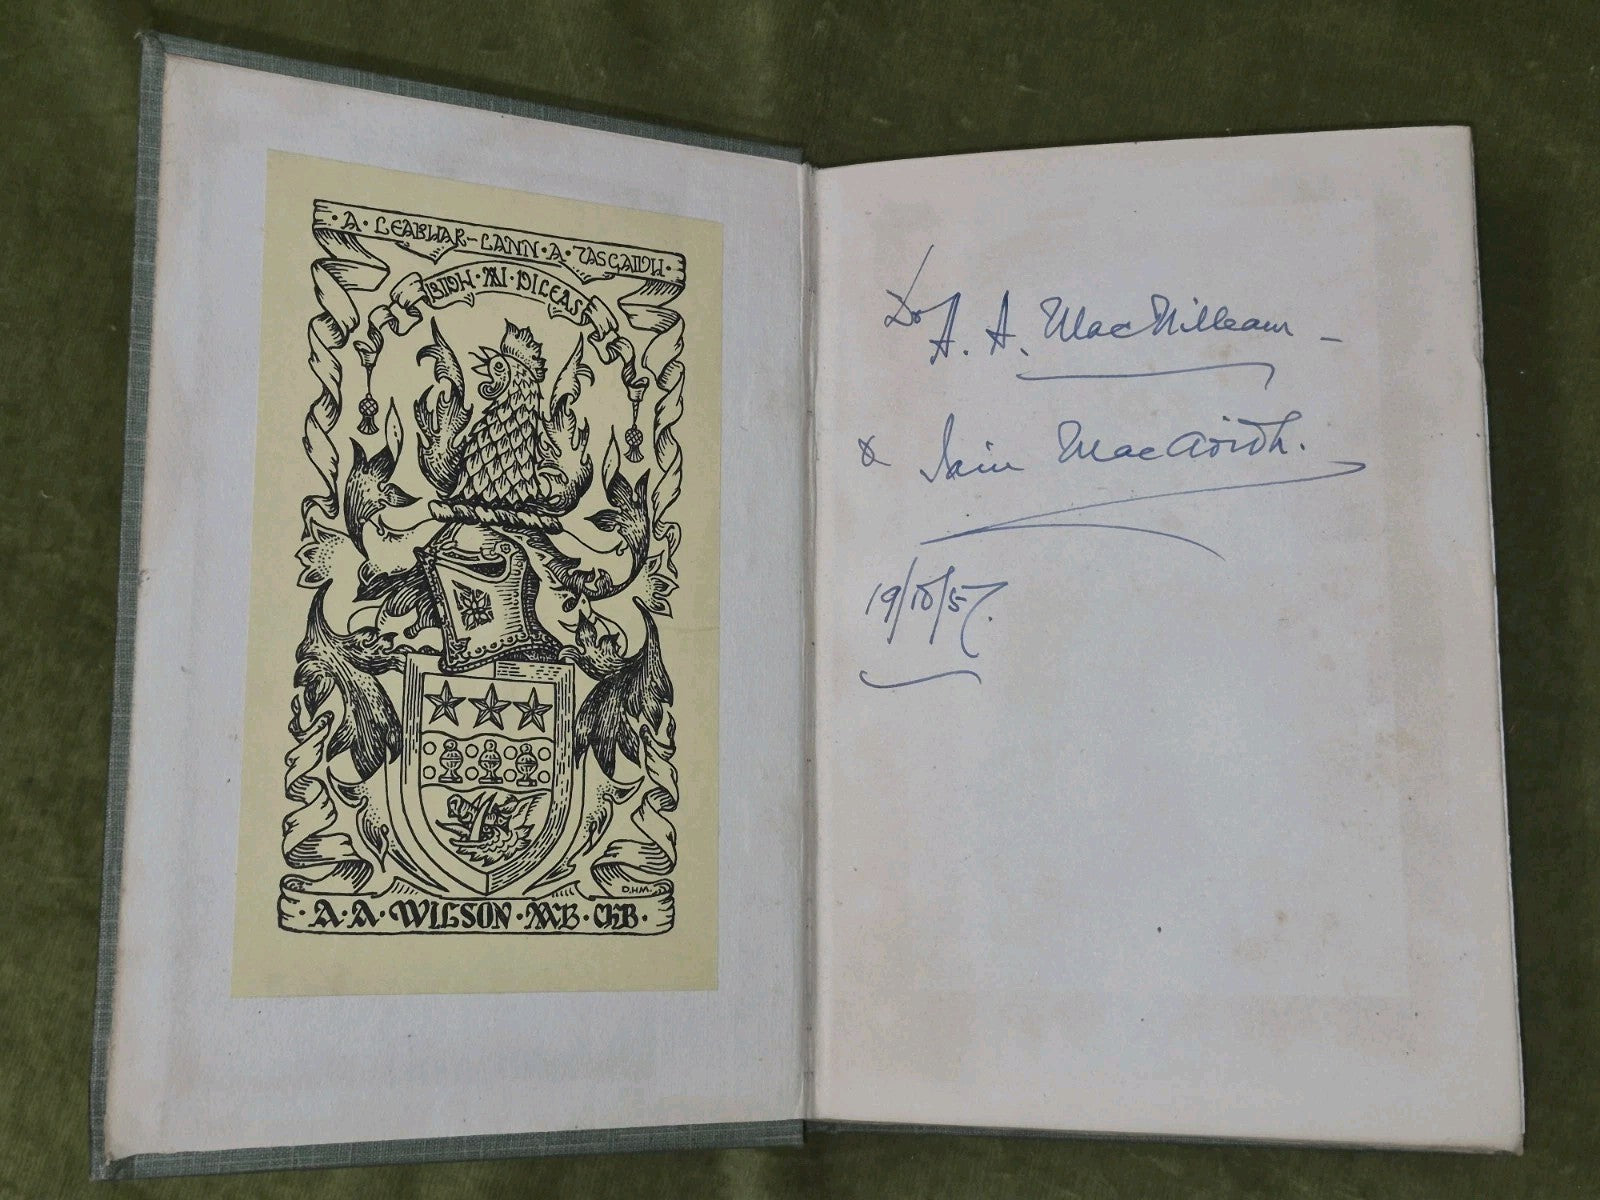 · A · LEABHAR-LANN · A · TASGAIDH ·
BIDH · MI · DILEAS
D.H.M.
· A · A · WILSON · MB · CHB ·
Do A. A. MacUilleam –
& Iain MacAoidh.
19/10/57.